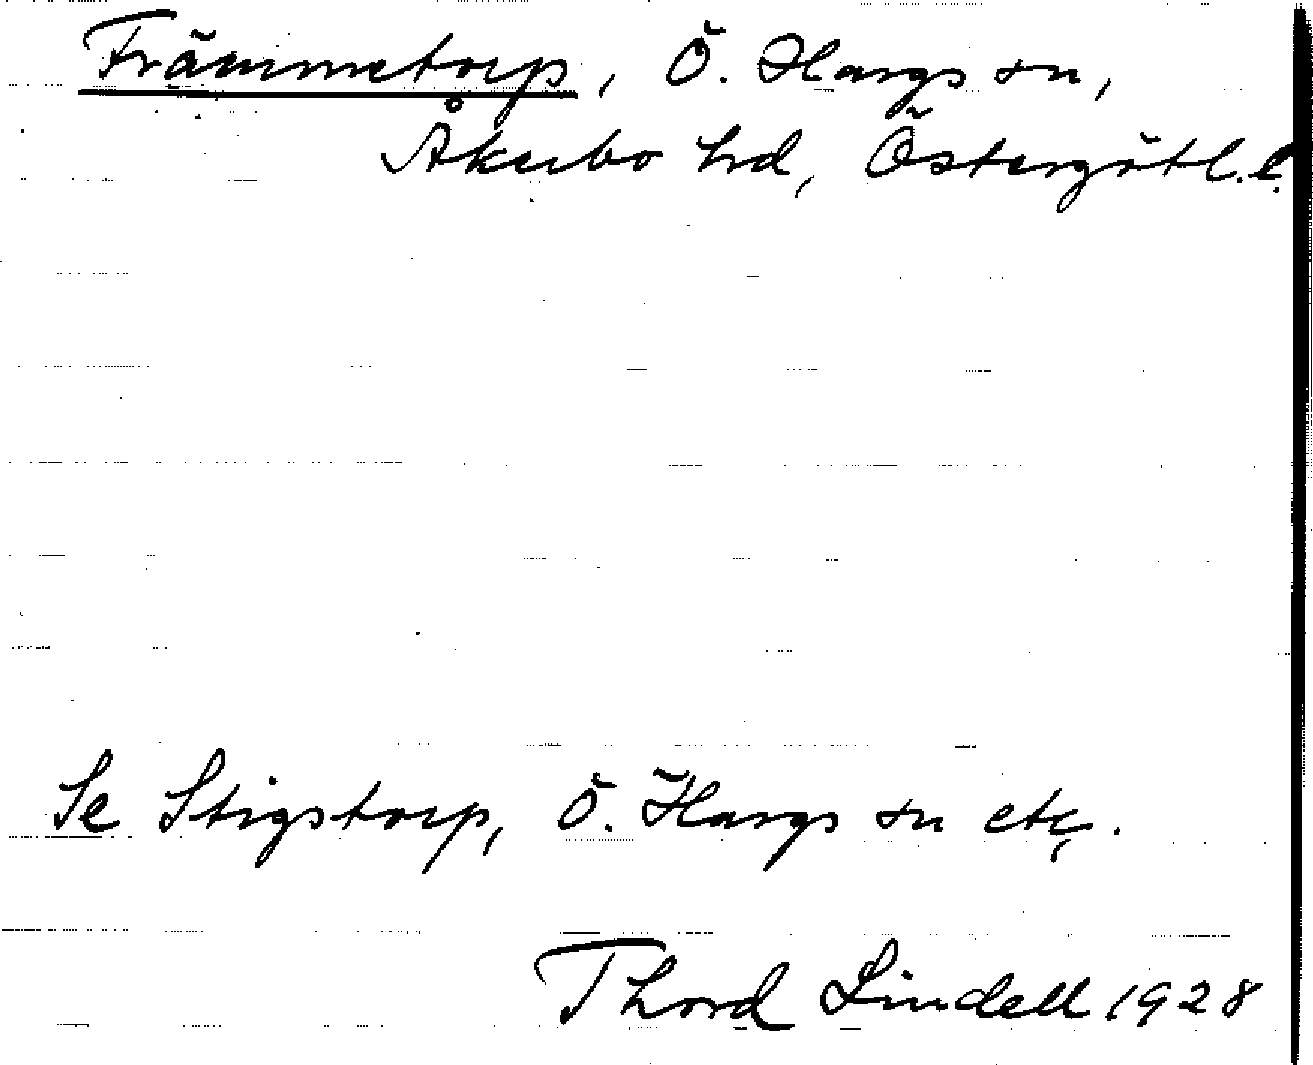 Främmetorp, Ö. Hargs sn,
Åkerbo hd, Östergötl. l.
Se Stigstorp, Ö. Hargs sn etc.
Thord Lindell 1928